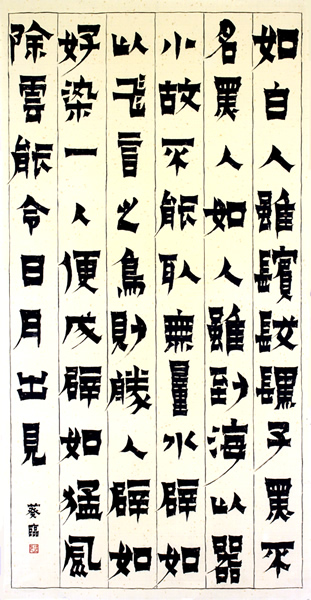 如白人雖鬢髮子黑不
名黑人如人雖到海以器
小故不能取無量水辟如
以飛言之鳥則勝人辟如
好染一人便成辟如猛風
除雲能令日月出見
葵臨